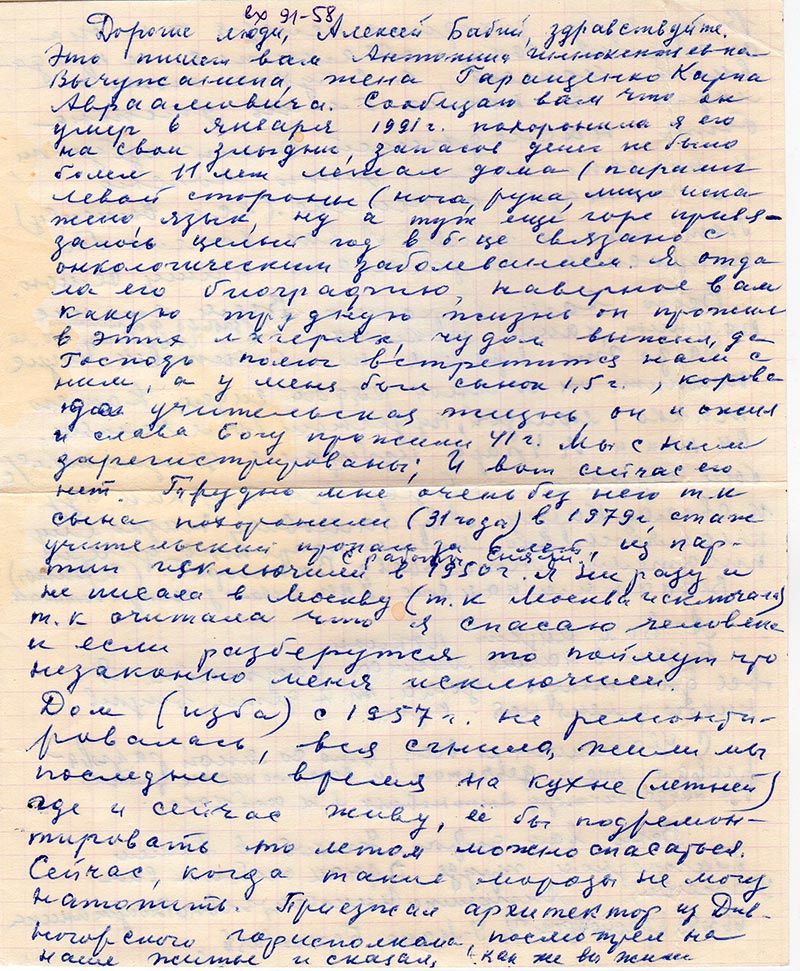 вх 91-58
Дорогие люди, Алексей Бабий, здравствуйте.
Это пишет вам Антонина Иннокентьевна
Вычужанина, жена Гаращенко Карпа
Авраамовича. Сообщаю вам что он
умер 6 января 1991 г. похоронила я его
на свои злыдни, запасов денег не было
более 11 лет лежал дома (парали
левой стороны (нога, рука, лицо иска-
жено язык, ну а тут ещё горе привя-
залось целый год в б-це связано с
онкологическим заболеванием. Я отда
ла его биографию, наверное вам
какую трудную жизнь он прожил
в этих лагерях, чудом выжил, да
Господь помог встретится нам с
ним, а у меня был сынок 1,5 г., корова
да учительская жизнь он и ожил
и слава Богу прожили 41 г. Мы с ним
зарегистрированы; И вот сейчас его
нет. Трудно мне очень без него т.к
сына похоронили (31 года) в 1979 г, стаж
учительский пропал за лет, из пар-
с работы сняли.
тии исключили в 1950 г. Я ни разу и
не писала в Москву (т.к Москва исключала)
т.к считала что я спасаю человека
и если разберутся то поймут что
незаконно меня исключили.
Дом (изба) с 1957 г. не ремонти-
ровалась, вся сгнила, жили мы
последнее время на кухне (летней)
где и сейчас живу, её бы подремон-
тировать то летом можно спасаться.
Сейчас, когда такие морозы не могу
натопить. Приезжал архитектор из Див-
ногорского горисполкома, посмотрел на
наше житьё и сказал, "как же вы жили